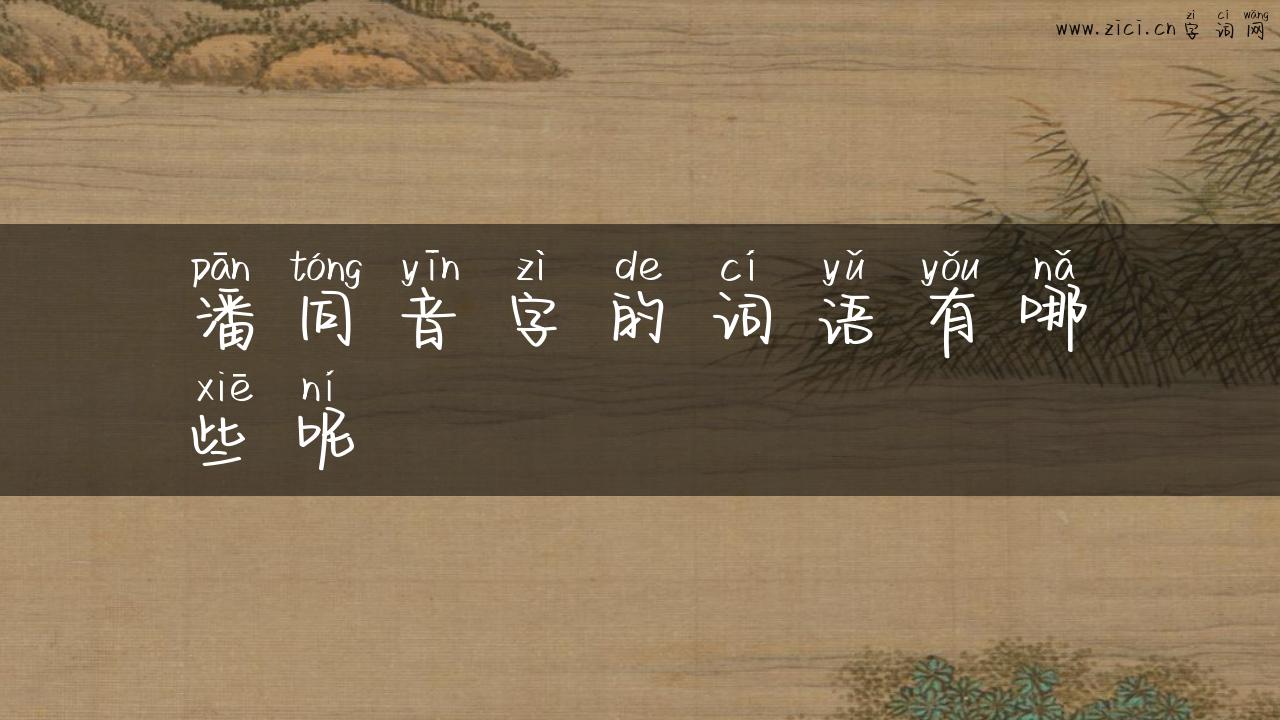 zì cí wǎng
www.zici.cn 字词网
pān tóng yīn zì de cí yǔ yǒu nǎ
潘同音字的词语有哪
xiē ní
些呢